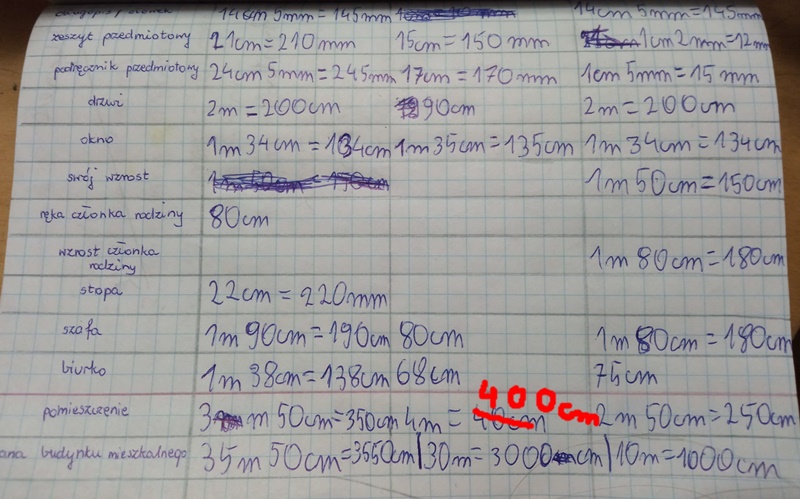 14cm 5mm = 145mm 14cm 5mm = 145mm
zeszyt przedmiotowy 21cm = 210mm 15cm = 150mm 1cm 2mm = 12mm
podręcznik przedmiotowy 24cm 5mm = 245mm 17cm = 170mm 1cm 5mm = 15mm
drzwi 2m = 200cm 90cm 2m = 200cm
okno 1m 34cm = 134cm 1m 35cm = 135cm 1m 34cm = 134cm
swój wzrost 1m 50cm = 150cm 1m 50cm = 150cm
ręka członka rodziny 80cm
wzrost członka 1m 80cm = 180cm
rodziny
stopa 22cm = 220mm
szafa 1m 90cm = 190cm 80cm 1m 80cm = 180cm
biurko 1m 38cm = 138cm 68cm 75cm
400cm
pomieszczenie 3m 50cm = 350cm 4m = 40cm 2m 50cm = 250cm
budynku mieszkalnego 35m 50cm = 3550cm | 30m = 3000cm | 10m = 1000cm